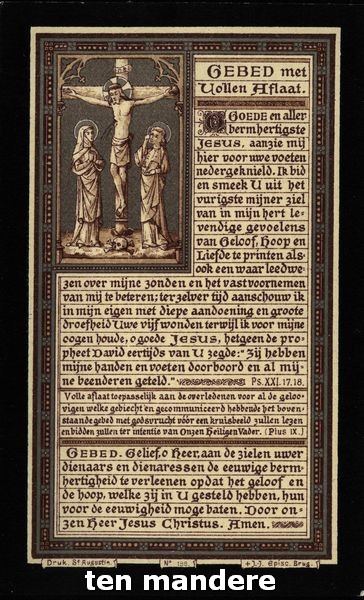 GEBED met
Vollen Aflaat.
GOEDE en aller
bermhertigste
JESUS, aanzie mij
hier voor uwe voeten
nedergeknield. Ik bid
en smeek U uit het
vurigste mijner ziel
van in mijn hert le-
vendige gevoelens
van Geloof, Hoop en
Liefde te printen als-
ook een waar leedwe-
zen over mijne zonden en het vast voornemen
van mij te beteren; terzelver tijd aanschouw ik
in mijn eigen met diepe aandoening en groote
droefheid Uwe vijf wonden terwijl ik voor mijne
oogen houde, o goede JESUS, hetgeen de pro-
pheet David eertijds van U zegde: "Zij hebben
mijne handen en voeten doorboord en al mij-
ne beenderen geteld." Ps. XXI. 17.18.
Volle aflaat toepasselijk aan de overledenen voor al de geloo-
vigen welke gebiecht en gecommuniceerd hebbende het boven-
staande gebed met godsvrucht vóór een kruisbeeld zullen lezen
en bidden zullen ter intentie van Onzen Heiligen Vader. (Pius IX.)
GEBED. Gelief, o Heer, aan de zielen uwer
dienaars en dienaressen de eeuwige berm-
hertigheid te verleenen opdat het geloof en
de hoop, welke zij in U gesteld hebben, hun
voor de eeuwigheid moge baten. Door on-
zen Heer Jesus Christus. Amen.
Druk. St Augustin. No 188. † J.J. Episc. Brug.
ten mandere